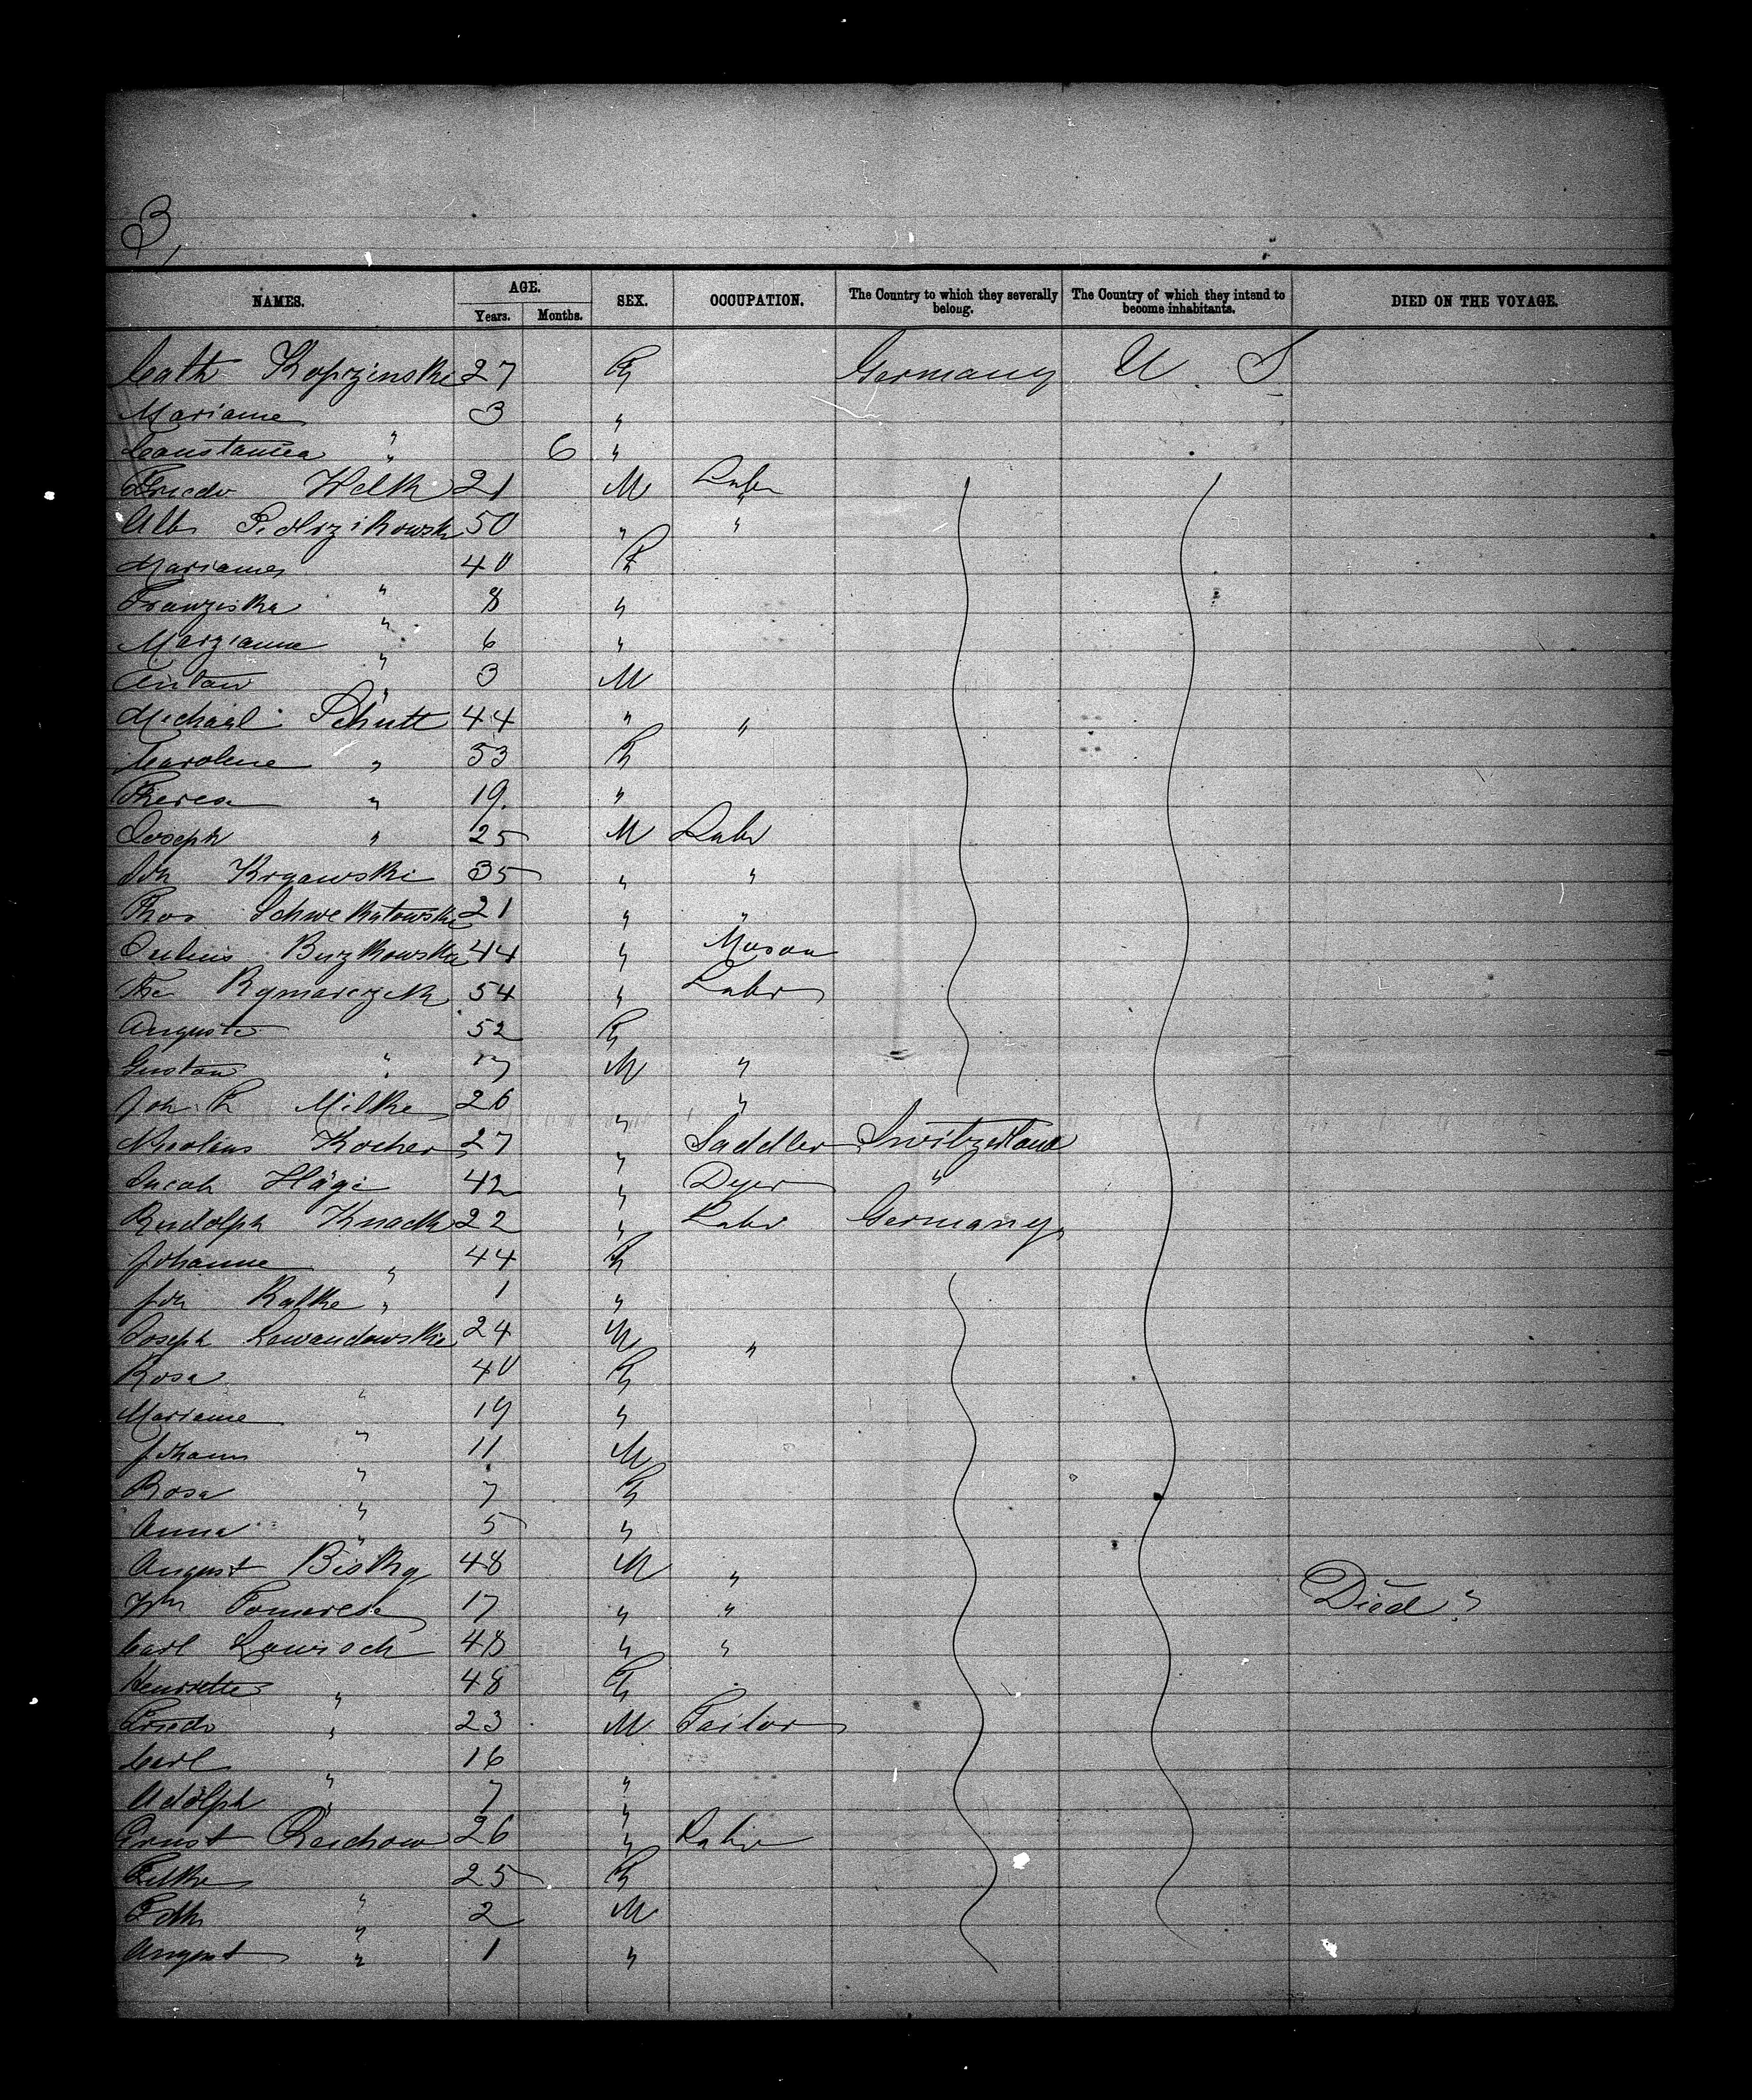 3,
NAMES. AGE. SEX. OCCUPATION. The Country to which they severally belong. The Country of which they intend to become inhabitants. DIED ON THE VOYAGE.
Years. Months.
Cath Kopzinski 27 F Germany U. S
Marianne " 3 "
Constancia " 6 "
Friedr Welk 21 M Labr
Alb. 50 " "
Marianne " 40 F
Franziska " 8 "
Marzianna " 6 "
Anton " 3 M
Michael Schutt 44 " "
Caroline " 53 F
Theresa " 19 "
Joseph " 25 M Labr
Joh Krgawski 35 " "
Thos Schwekatowski 21 " "
Julius Buzkowska 44 " Mason
Rymarczek 54 " Labr
Auguste " 52 F
Gustav " M "
Joh. F Milke 26 " "
Nicolaus Kocher 27 " Saddler Switzerland
Jacob Hägi 42 " Dyer "
Rudolph Knack 22 " Labr Germany
Johanne " 44 F
Joh Ratke " 1 "
Joseph Lewandowskie 24 M "
Rosa " 40 F
Marianne " 19 "
Johann " 11 M
Rosa " 7 F
Anna " 5 "
August Bisky 48 M "
Joh 17 " " Died "
Carl Lowisch 48 " "
Henriette " 48 F
Friedr " 23 M Tailor
Carl " 16 "
Adolph " 7 "
Ernst Reichow 26 " Labr
25 F
" 2 M
August " 1 "